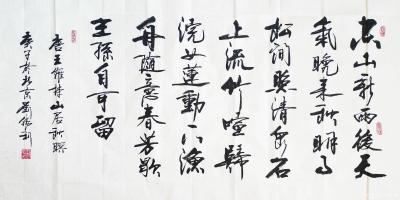 空山新雨後天
氣晚來秋明月
松間照清泉石
上流竹喧歸
浣女蓮動下漁
舟隨意春芳歇
王孫自可留
唐王維詩山居秋暝
於北京